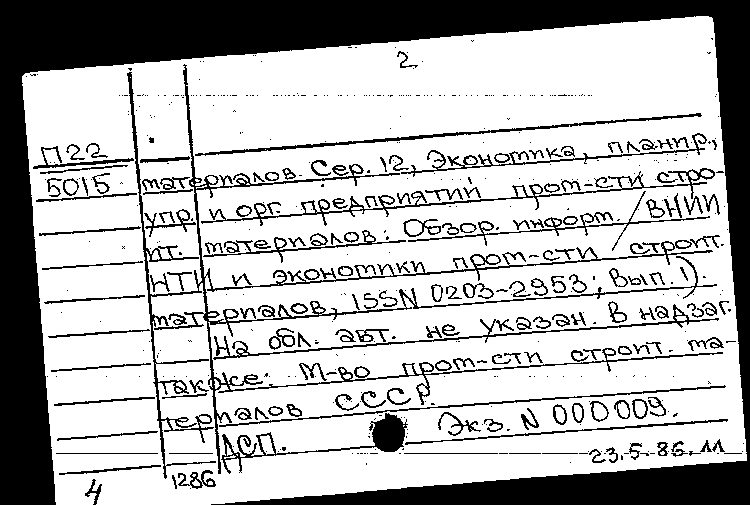 2
П22
5015
материалов. Сер. 12, Экономика, планир.,
упр. и орг. предприятий пром-сти стро-
ит. материалов: Обзор. информ. / ВНИИ
НТИ и экономики пром-сти строит.
материалов, ISSN 0203-2953; Вып. 1).
На обл. авт. не указан. В надзаг.
также: М-во пром-сти строит. ма-
териалов СССР.
ДСП. Экз. N 000009.
23.5.86. 11
4 1286